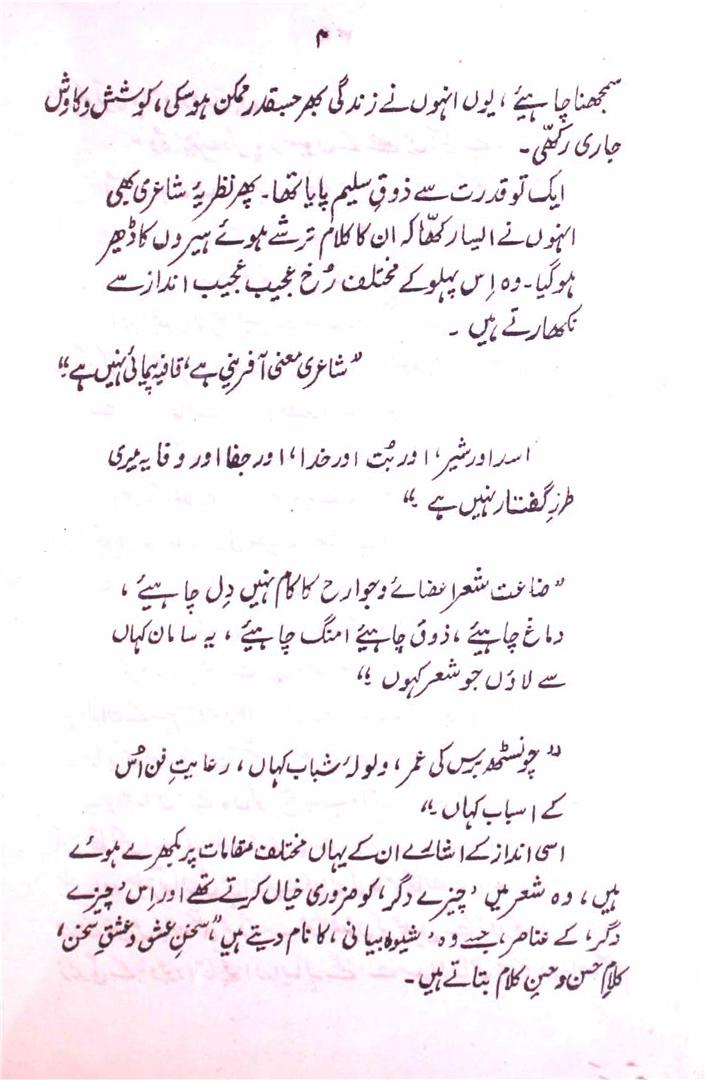 ۴
سمجھنا چاہیئے ، یوں انہوں نے زندگی بھر حسبقدر ممکن ہو سکی ، کوشش و کاوش
جاری رکھّی ۔
ایک تو قدرت سے ذوقِ سلیم پایا تھا ۔ پھر نظریۂ شاعری بھی
انہوں نے ایسا رکھّا کہ ان کا کلام ترشے ہوئے ہیروں کا ڈھیر
ہو گیا ۔ وہ اِس پہلو کے مختلف رُخ عجیب عجیب انداز سے
نکھارتے ہیں ۔
”شاعری معنی آفرینی ہے ، قافیہ پیمائی نہیں ہے ۔“
اسد اور شیر ، اور بُت اور خدا ، اور جفا اور وفا یہ میری
طرزِ گفتار نہیں ہے ۔“
”ضاعت شعر اعضائے و جوارح کا کام نہیں دِل چاہیئے ،
دماغ چاہیئے ، ذوق چاہیئے امنگ چاہیئے ، یہ سامان کہاں
سے لاؤں جو شعر کہوں ۔“
”چونسٹھ برس کی عمر ، ولولۂ شباب کہاں ، رعایتِ فن اُس
کے اسباب کہاں ۔“
اسی انداز کے اشالے ان کے یہاں مختلف مقامات پر بکھرے ہوئے
ہیں ، وہ شعر میں ’چیزے دگر‘ کو ضروری خیال کرتے تھے اور اِس ’چیزے
دگر‘ کے عناصر ، جسے وہ ’شیوہ بیانی‘ کا نام دیتے ہیں ”سخنِ عشق و عشقِ سخن ،
کلامِ حسن و حسنِ کلام بتاتے ہیں ۔